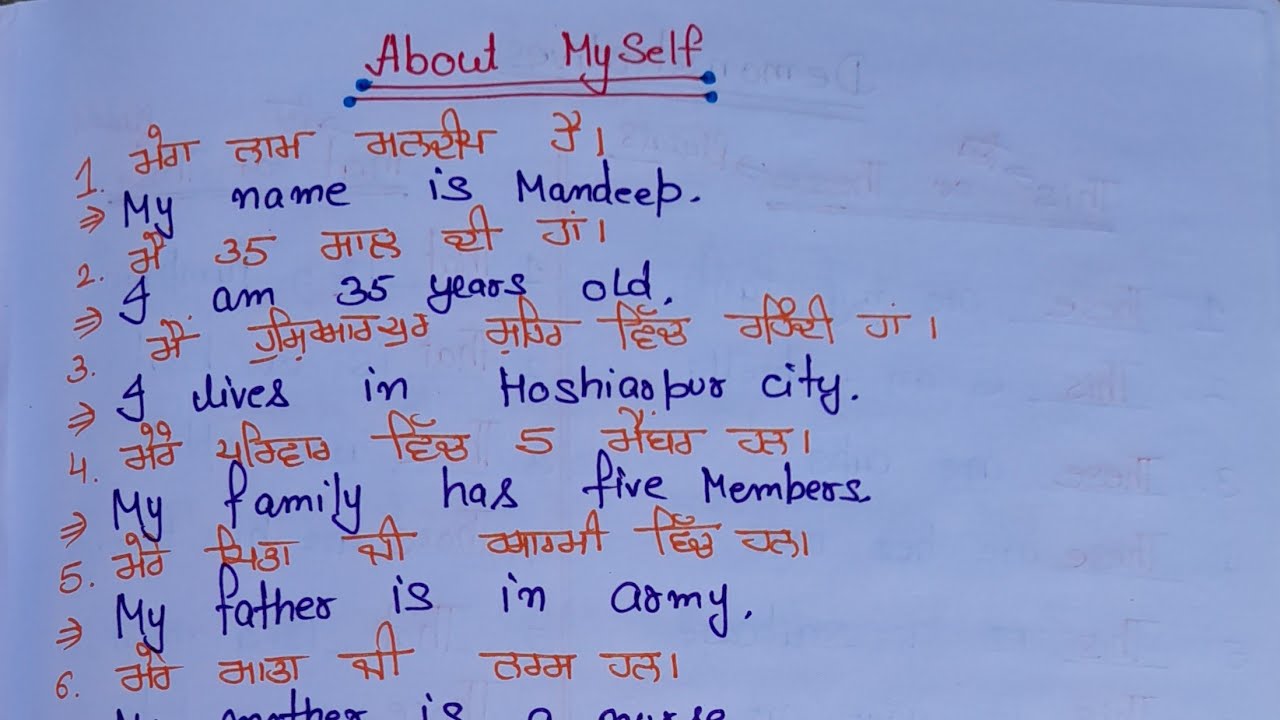 About MySelf
1. ਮੇਰਾ ਨਾਮ ਮਨਦੀਪ ਹੈ।
⇒ My name is Mandeep.
2. ਮੈਂ 35 ਸਾਲ ਦੀ ਹਾਂ।
⇒ I am 35 years old.
3. ਮੈਂ ਹੁਸ਼ਿਆਰਪੁਰ ਸ਼ਹਿਰ ਵਿੱਚ ਰਹਿੰਦੀ ਹਾਂ।
⇒ I lives in Hoshiarpur city.
4. ਮੇਰੇ ਪਰਿਵਾਰ ਵਿੱਚ 5 ਮੈਂਬਰ ਹਨ।
⇒ My family has five Members.
5. ਮੇਰੇ ਪਿਤਾ ਜੀ ਆਰਮੀ ਵਿੱਚ ਹਨ।
⇒ My father is in army.
6. ਮੇਰੇ ਮਾਤਾ ਜੀ ਨਰਸ ਹਨ।
My mother is a nurse